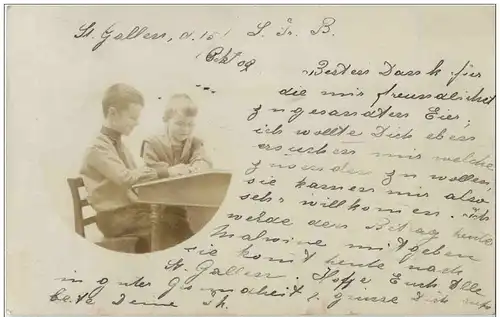 St. Gallen, d. 15. L. Fr. B.
Okt 09
Besten Dank für
die mir freundlichst
zugesandten Eier;
ich wollte Dich eben
ersuchen mir welche
zusenden zu wollen,
sie kamen mir also
sehr willkommen. Ich
werde den Betrag heute
Malwine mitgeben
sie kommt heute nach
St. Gallen. Hoffe, Euch Alle
in guter Gesundheit & grüsse Dich
beste Deine Th.